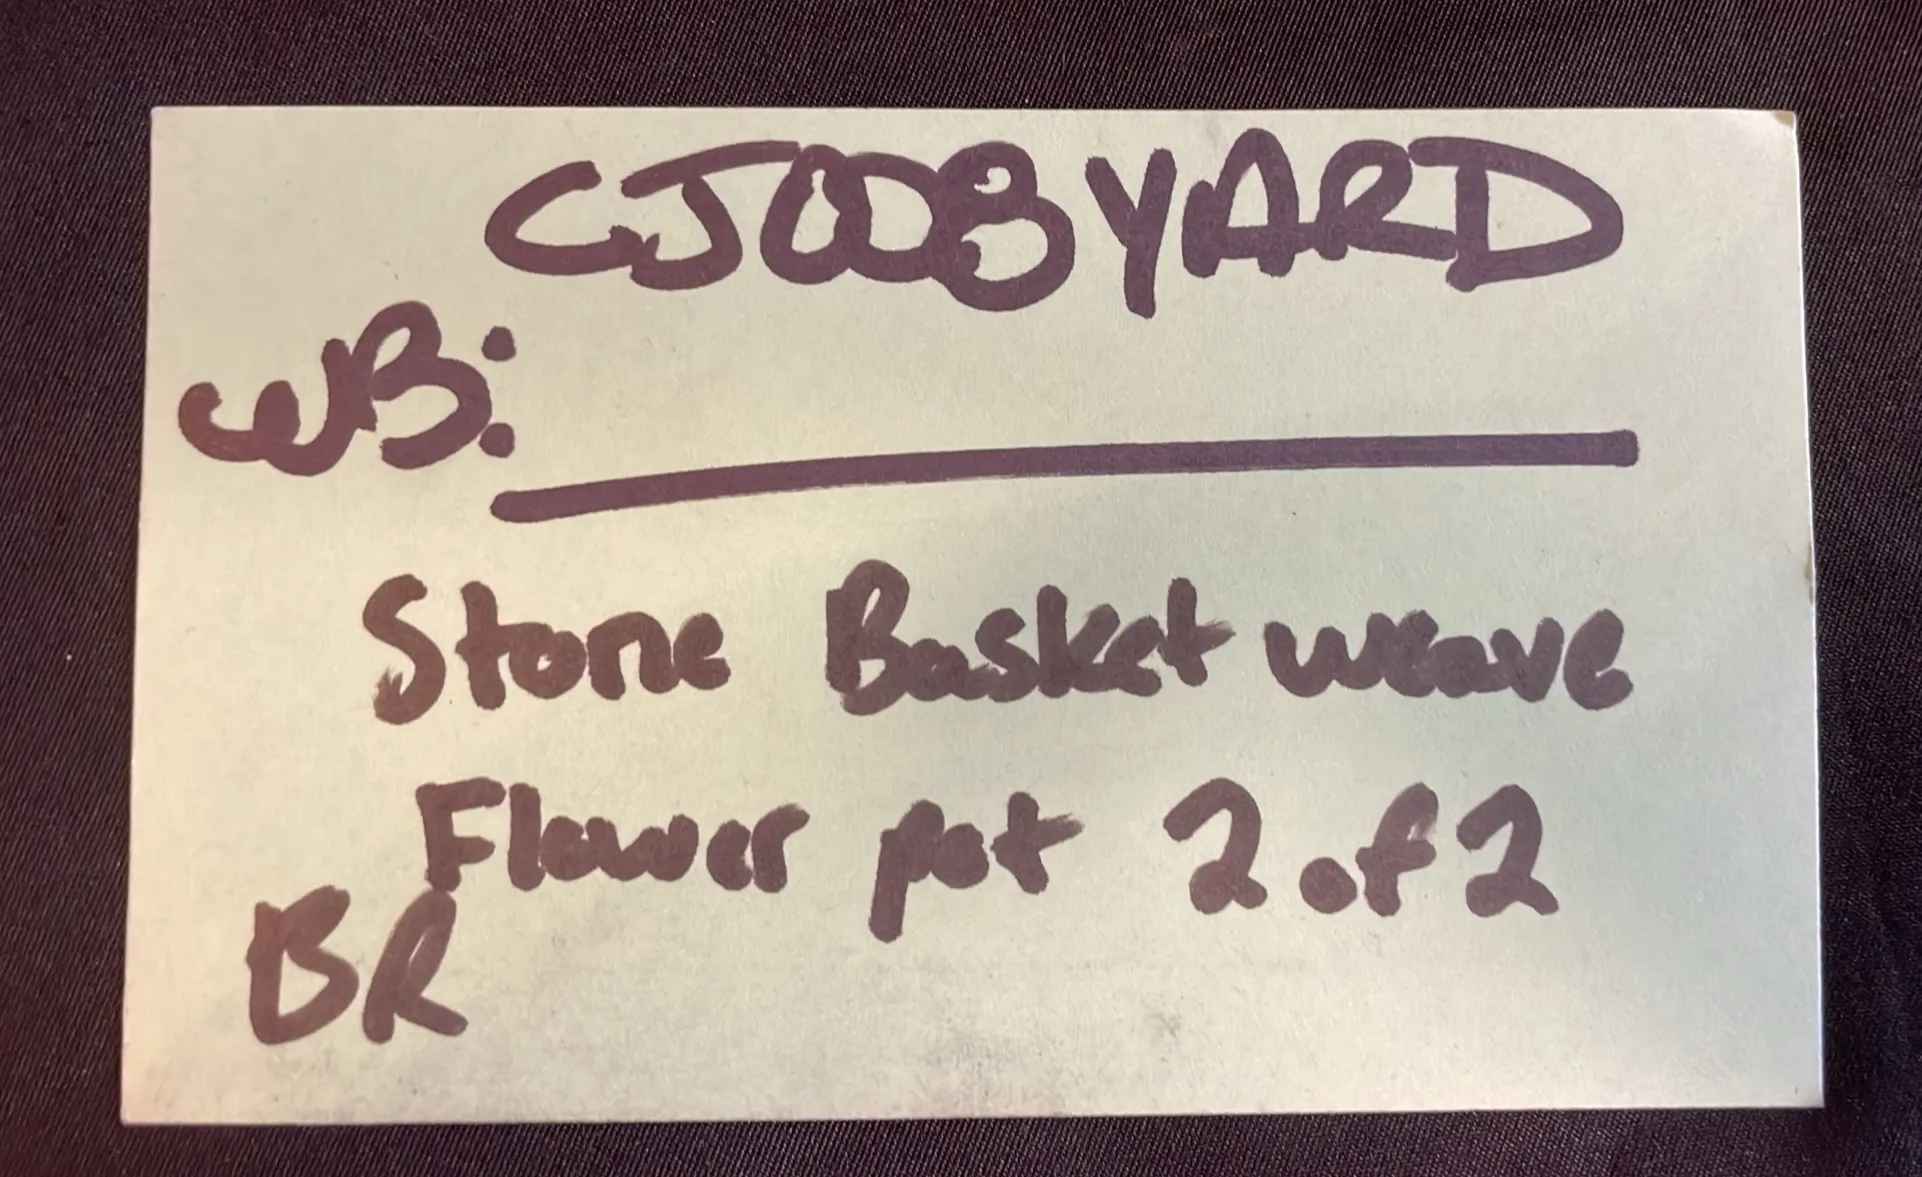 CJ008YARD
WB:
Stone Basket weave
Flower pot 2 of 2
BR